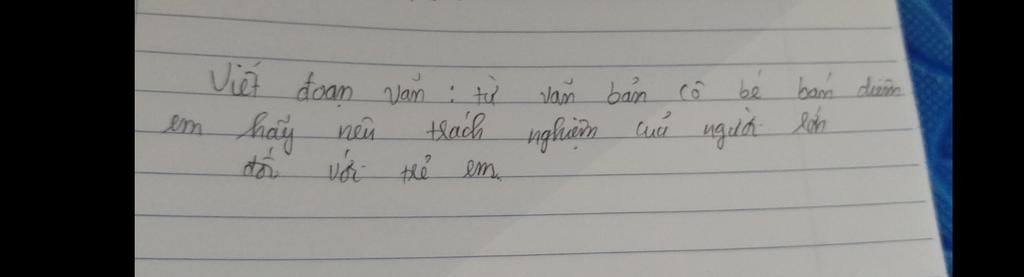 Viết đoạn văn : từ văn bản cô bé bán diêm
em hãy nêu trách nghiệm của người lớn
đối với trẻ em.